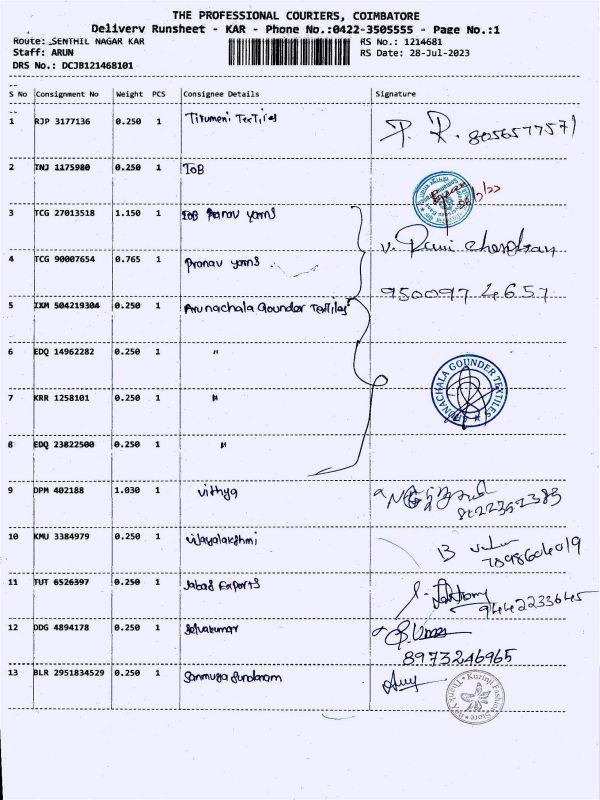 THE PROFESSIONAL COURIERS, COIMBATORE
Delivery Runsheet - KAR - Phone No.:0422-3505555 - Page No.:1
Route: SENTHIL NAGAR KAR RS No.: 1214681
Staff: ARUN RS Date: 28-Jul-2023
DRS No.: DCJB121468101
S No Consignment No Weight PCS Consignee Details Signature
1 RJP 3177136 0.250 1 Tirumeni Textiles P. R. 8056577571
2 TNJ 1175980 0.250 1 IOB
3 TCG 27013518 1.150 1 IOB Pranav yarns
V. Ravi chandran
4 TCG 90007654 0.765 1 Pranav yarns
950097 4657
5 IXM 504219304 0.250 1 Arunachala Gounder Textiles
6 EDQ 14962282 0.250 1 "
ARUNACHALA GOUNDER TEXTILES
7 KRR 1258101 0.250 1 "
8 EDQ 23822500 0.250 1 "
9 DPM 402188 1.030 1 vithya
8622352383
10 KMU 3384979 0.250 1 vijayalakshmi B
7098604019
11 TUT 6526397 0.250 1 Jabas Exports
9442233645
12 DDG 4894178 0.250 1 Selvakumar
8973246965
13 BLR 2951834529 0.250 1 Sanmuga Sundaram
Kurinji Fashion Store